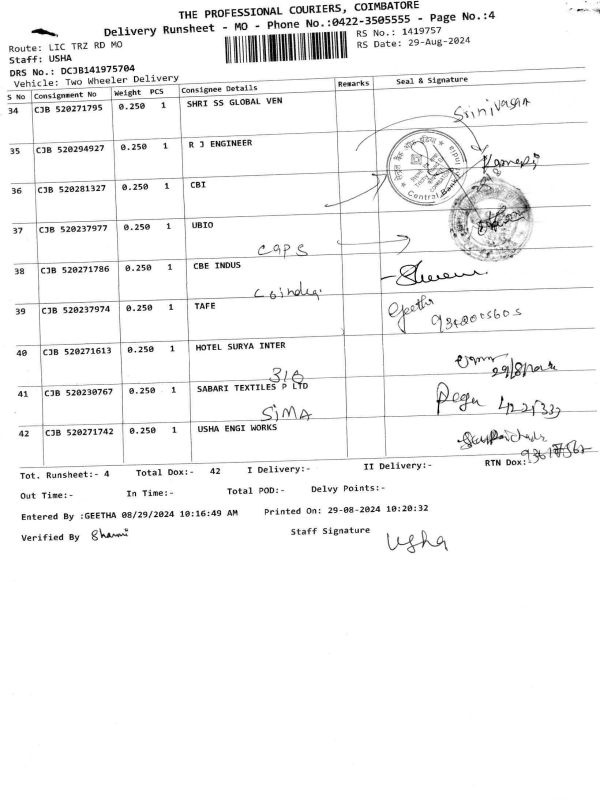 THE PROFESSIONAL COURIERS, COIMBATORE
Delivery Runsheet - MO - Phone No.:0422-3505555 - Page No.:4
Route: LIC TRZ RD MO
RS No.: 1419757
Staff: USHA
RS Date: 29-Aug-2024
DRS No.: DCJB141975704
Vehicle: Two Wheeler Delivery
S No Consignment No Weight PCS Consignee Details Remarks Seal & Signature
34 CJB 520271795 0.250 1 SHRI SS GLOBAL VEN Srinivasan
35 CJB 520294927 0.250 1 R J ENGINEER
36 CJB 520281327 0.250 1 CBI Central Bank
37 CJB 520237977 0.250 1 UBIO
caps
38 CJB 520271786 0.250 1 CBE INDUS
Coindia
39 CJB 520237974 0.250 1 TAFE Geetha
40 CJB 520271613 0.250 1 HOTEL SURYA INTER
316
41 CJB 520230767 0.250 1 SABARI TEXTILES P LTD
SiMA
42 CJB 520271742 0.250 1 USHA ENGI WORKS
Tot. Runsheet:- 4 Total Dox:- 42 I Delivery:- II Delivery:- RTN Dox:-
Out Time:- In Time:- Total POD:- Delvy Points:-
Entered By :GEETHA 08/29/2024 10:16:49 AM Printed On: 29-08-2024 10:20:32
Verified By Sharmi Staff Signature Usha